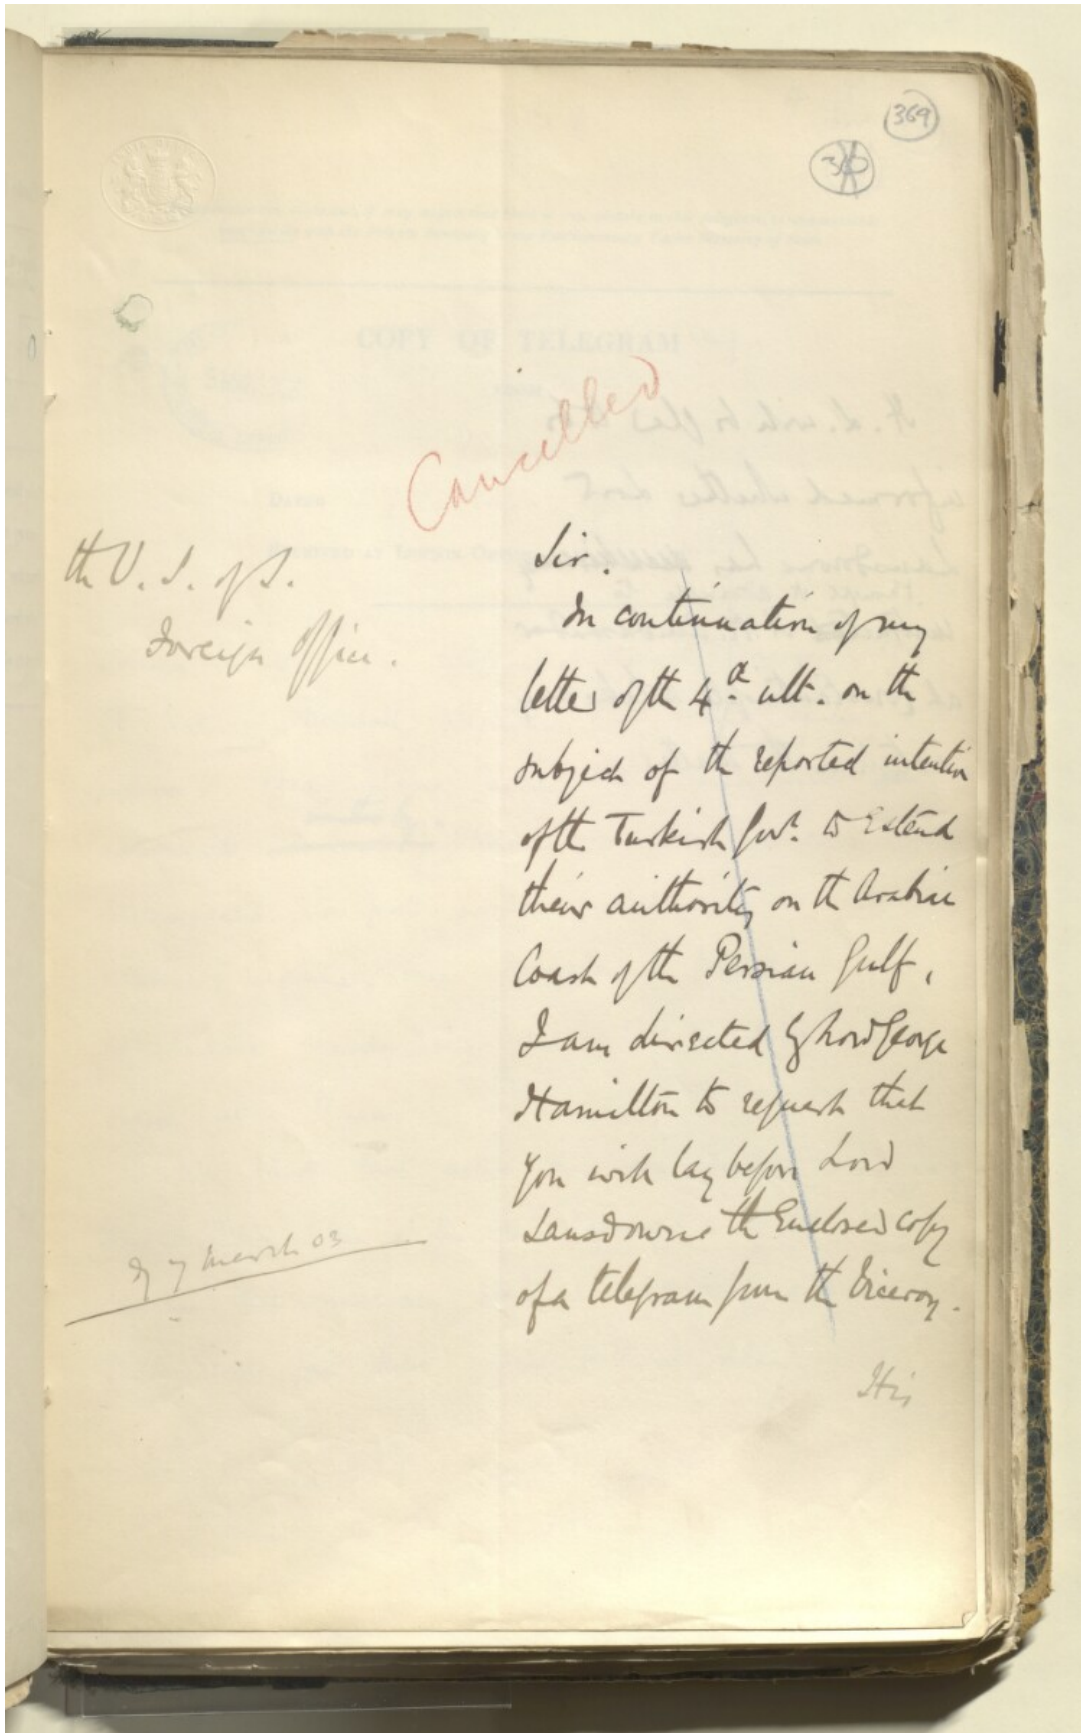 369
Cancelled
the U. S. of S.
Foreign Office.
Sir.
In continuation of my
letter of the 4th ult. on the
subject of the reported intention
of the Turkish Govt. to extend
their authority on the Arabian
Coast of the Persian Gulf,
I am directed by Lord George
Hamilton to request that
you will lay before Lord
Lansdowne the enclosed copy
of a telegram from the Viceroy.
7 March 03
His